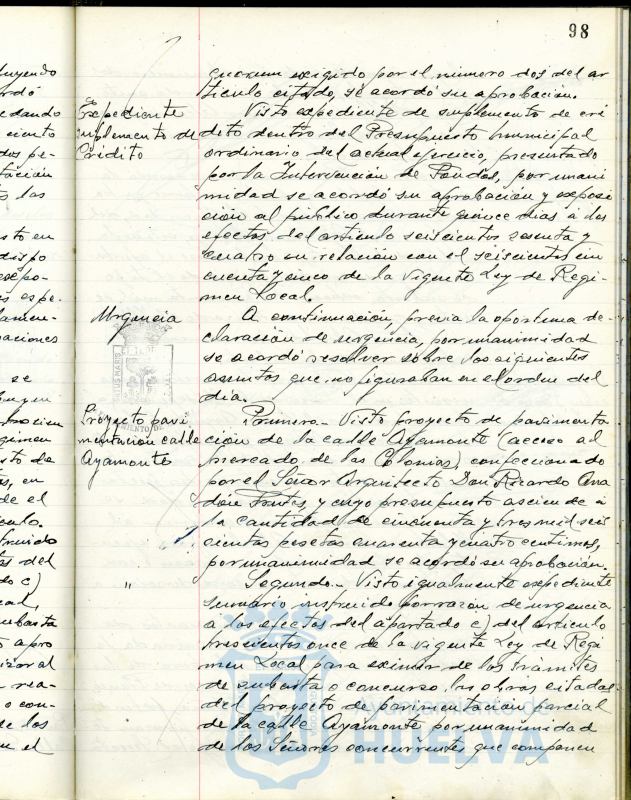 98
luyendo
ordó
edando
ciento
dos pe-
tación
s las
sto en
dispo
expo-
s espe-
lamen-
paciones
se
to de
os, en
de el
culo.
truido
tos del
do c)
cal,
ubasta
o apro
izar al
rea-
o con-
de los
en el
quorum exigido por el número dos del ar
tículo citado, se acordó su aprobación.
Expediente
suplemento de
Crédito
Visto expediente de suplemento de cré
dito dentro del Presupuesto municipal
ordinario del actual ejercicio, presentado
por la Intervención de Fondos, por unani
midad se acordó su aprobación y exposi
ción al público durante quince días a los
efectos del artículo seiscientos sesenta y
cuatro en relación con el seiscientos cin
cuenta y cinco de la vigente Ley de Regi-
men Local.
Urgencia
A continuación, previa la oportuna de-
claración de urgencia, por unanimidad
se acordó resolver sobre los siguientes
asuntos que no figuraban en el orden del
día.
Proyecto pavi
mentación calle
Ayamonte
Primero.- Visto proyecto de pavimenta
ción de la calle Ayamonte (acceso al
mercado de las Colonias), confeccionado
por el Señor Arquitecto Don Ricardo Ana
dón Frutos, y cuyo presupuesto asciende a
la cantidad de cincuenta y tres mil seis
cientas pesetas cuarenta y cuatro centimos,
por unanimidad se acordó su aprobación.
"
Segundo.- Visto igualmente expediente
sumario instruido por razón de urgencia
a los efectos del apartado c) del artículo
trescientos once de la vigente Ley de Regi
men Local para eximir de los trámites
de subasta o concurso las obras citadas
del proyecto de pavimentación parcial
de la calle Ayamonte por unanimidad
de los Señores concurrentes que componen
Ayuntamiento de
HUELVA